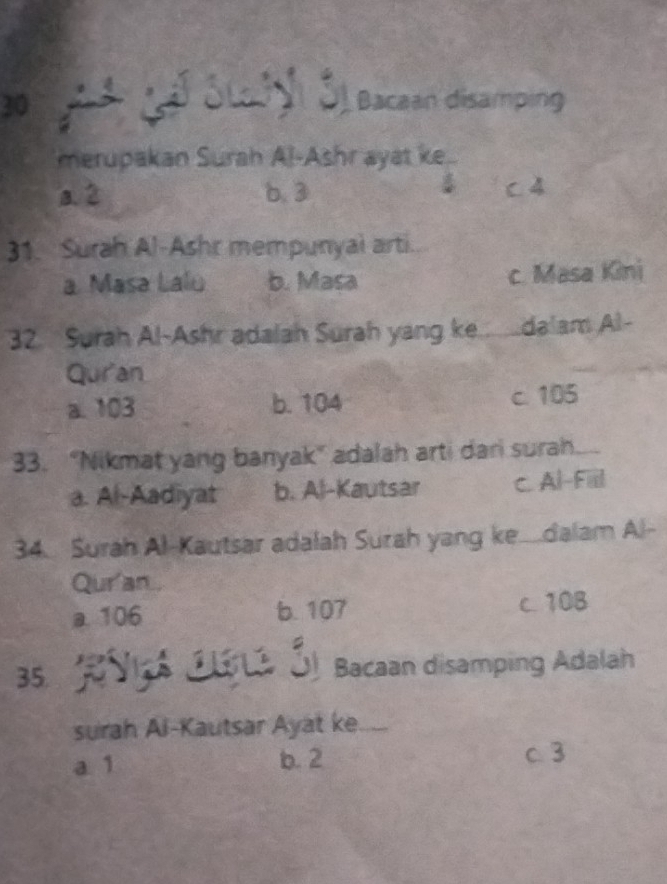 30 إِنَّ الْإِنْسَانَ لَفِيْ خُسْرٍ Bacaan disamping
merupakan Surah Al-Ashr ayat ke...
a. 2 b. 3 c. 4
31. Surah Al-Ashr mempunyai arti...
a. Masa Lalu b. Masa c. Masa Kini
32. Surah Al-Ashr adalah Surah yang ke......dalam Al-
Qur'an
a. 103 b. 104 c. 105
33. "Nikmat yang banyak" adalah arti dari surah....
a. Al-Aadiyat b. Al-Kautsar c. Al-Fiil
34. Surah Al-Kautsar adalah Surah yang ke....dalam Al-
Qur'an...
a. 106 b. 107 c. 108
35. إِنَّ شَانِئَكَ هُوَالْأَبْتَرُ Bacaan disamping Adalah
surah Al-Kautsar Ayat ke.....
a. 1 b. 2 c. 3